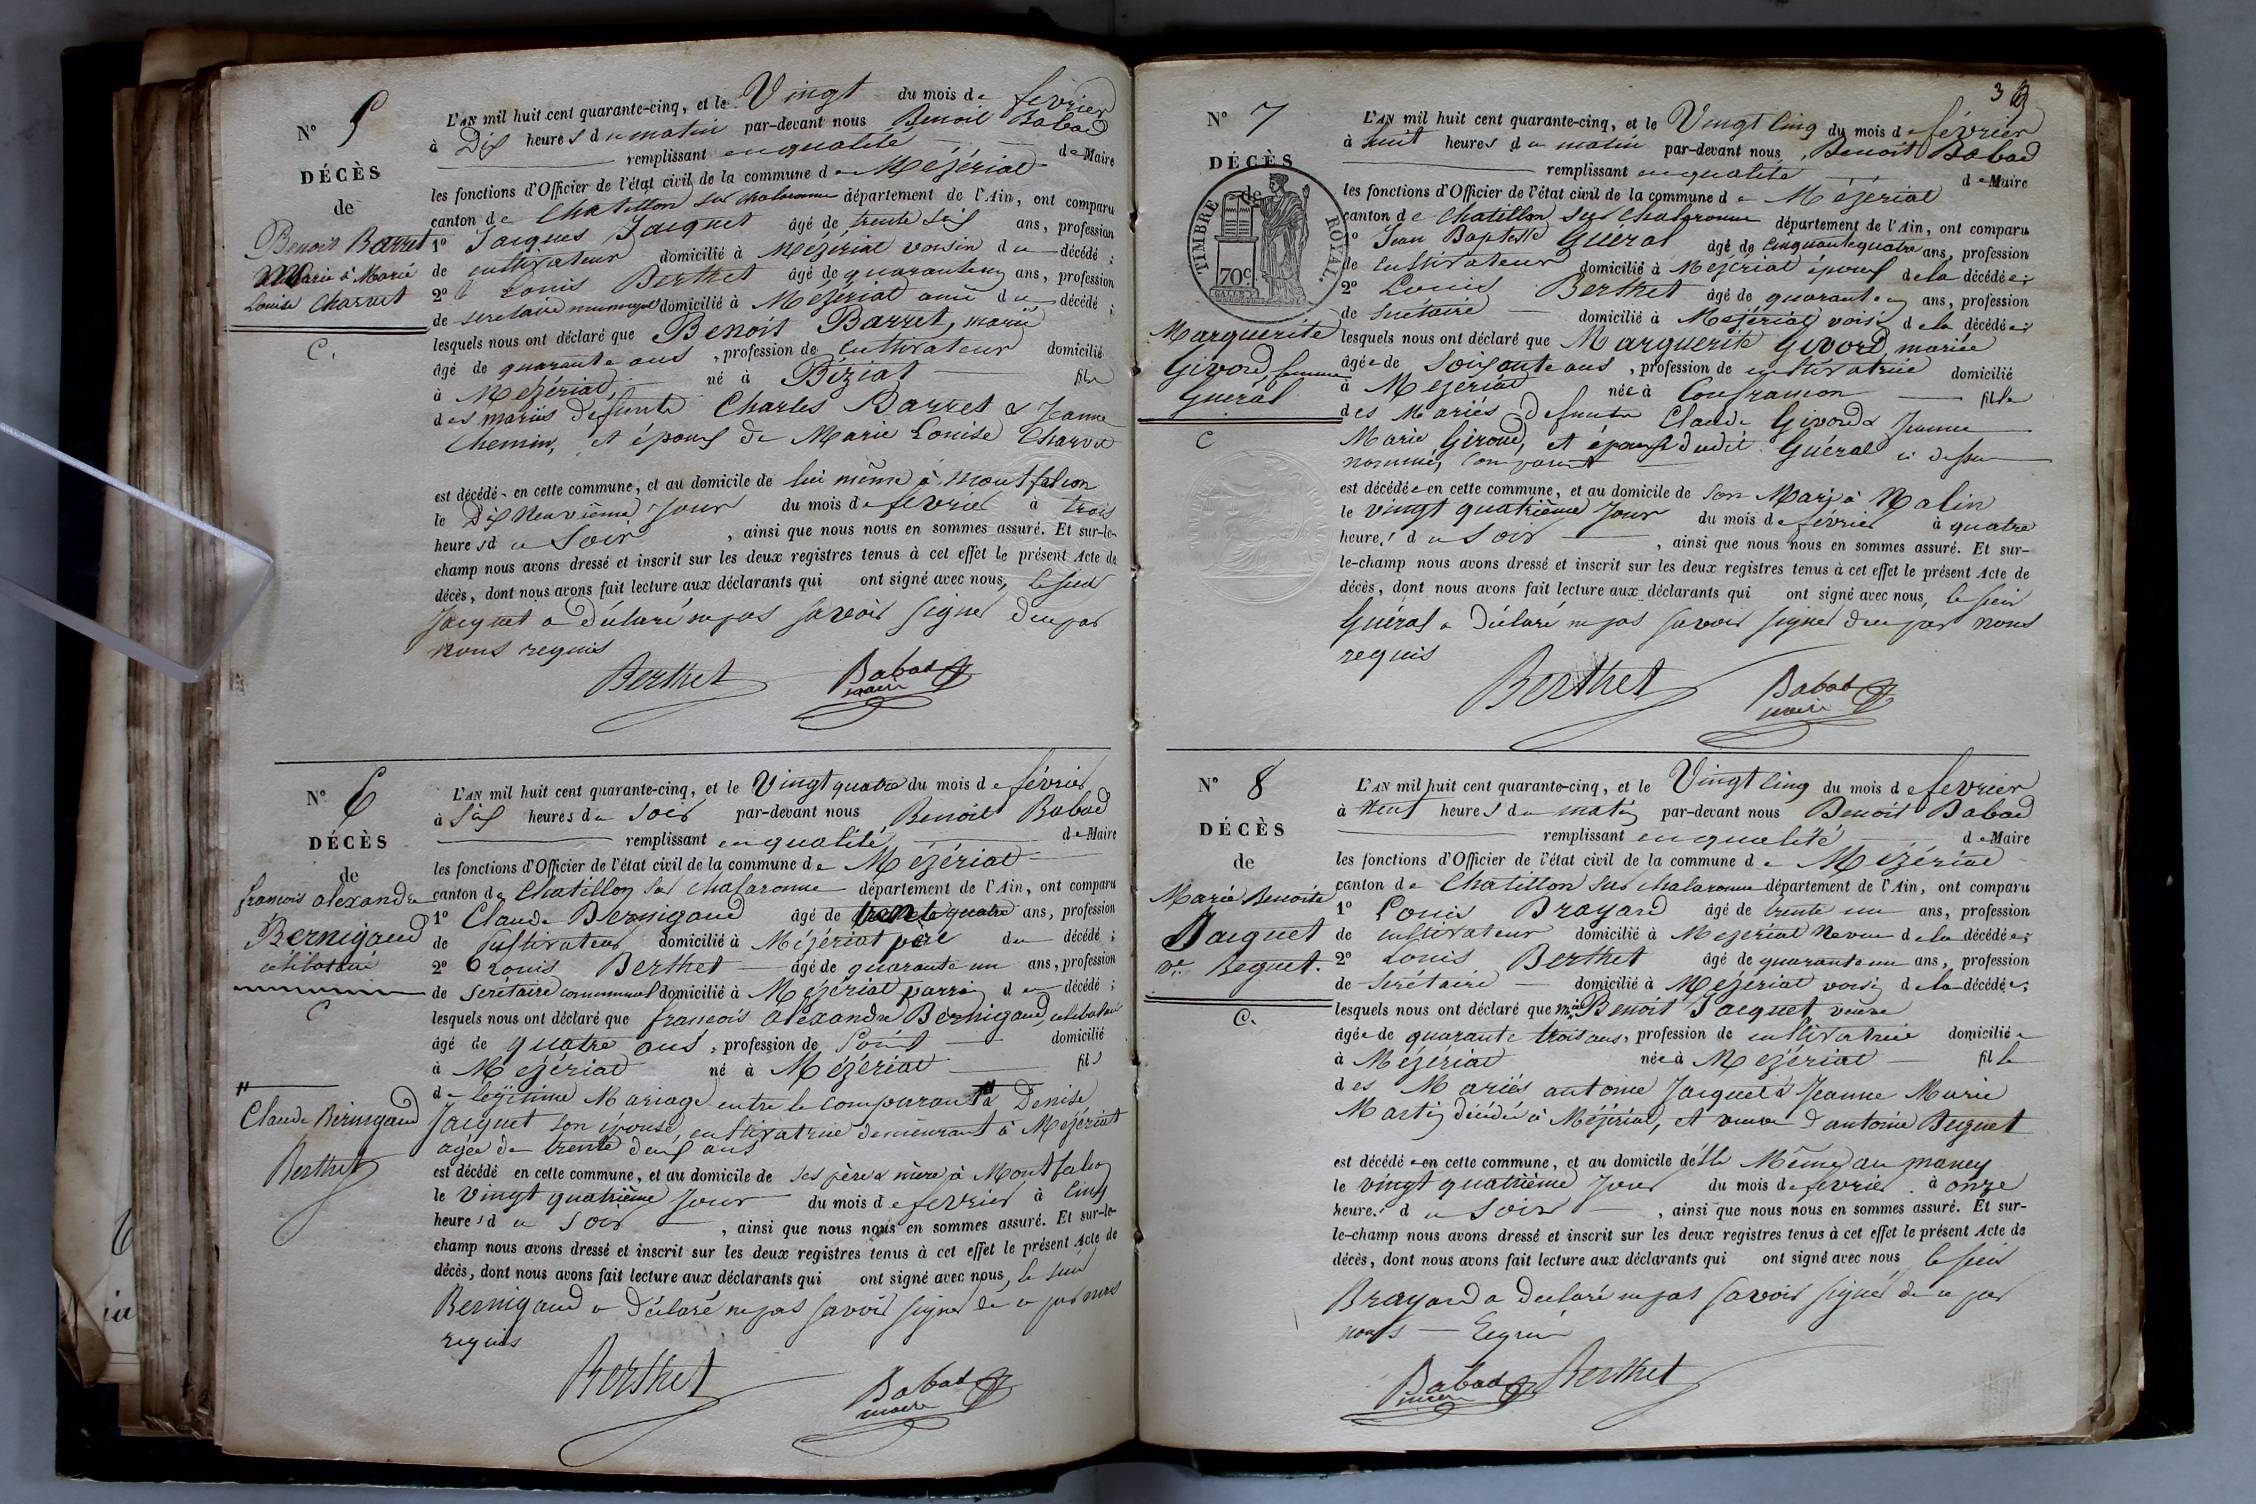 N° 5
DÉCÈS
de
Benoit Barret
Marié à Marie
Louise Charvet
C.
L'AN mil huit cent quarante-cinq, et le Vingt du mois de février
à Dix heures du matin par-devant nous Benoit Babad
remplissant en qualité de Maire
les fonctions d'Officier de l'état civil de la commune de Mézériat
canton de Chatillon sur chalaronne département de l'Ain, ont comparu
1° Jacques Jacquet âgé de trente six ans, profession
de cultivateur domicilié à Mézériat voisin du décédé ;
2° Louis Berthet âgé de quarante un ans, profession
de secretaire municipal domicilié à Mézériat ami du décédé ;
lesquels nous ont déclaré que Benoit Barret, marié
âgé de quarante ans, profession de cultivateur domicilié
à Mézériat, né à Biziat fils
des mariés defunts Charles Barret & Jeanne
Chemin, et époux de Marie Louise Charvet
est décédé en cette commune, et au domicile de lui même à Montfalcon
le Dix Neuvième Jour du mois de février à trois
heures du Soir, ainsi que nous nous en sommes assuré. Et sur-le-
champ nous avons dressé et inscrit sur les deux registres tenus à cet effet le présent Acte de
décès, dont nous avons fait lecture aux déclarants qui ont signé avec nous, le sieur
Jacquet a déclaré ne pas savoir signer de ce par
nous requis
Berthet Babad
maire
N° 6
DÉCÈS
de
françois alexandre
Bernigaud
célibataire
C
Claude Bernigaud
Berthet
L'AN mil huit cent quarante-cinq, et le Vingt quatre du mois de février
à Six heures du Soir par-devant nous Benoit Babad
remplissant en qualité de Maire
les fonctions d'Officier de l'état civil de la commune de Mézériat
canton de Chatillon sur chalaronne département de l'Ain, ont comparu
1° Claude Bernigaud âgé de trente quatre ans, profession
de cultivateur domicilié à Mézériat père du décédé ;
2° Louis Berthet âgé de quarante un ans, profession
de secretaire communal domicilié à Mézériat parrain du décédé ;
lesquels nous ont déclaré que françois alexandre Bernigaud, célibataire
âgé de quatre ans, profession de domicilié
à Mézériat né à Mézériat fils
de légitime Mariage entre le comparant & Denise
Jacquet son épouse, cultivatrice demeurant à Mézériat
agée de trente deux ans
est décédé en cette commune, et au domicile de ses père & mère à Montfalcon
le vingt quatrième Jour du mois de février à cinq
heures du Soir, ainsi que nous nous en sommes assuré. Et sur-le-
champ nous avons dressé et inscrit sur les deux registres tenus à cet effet le présent Acte de
décès, dont nous avons fait lecture aux déclarants qui ont signé avec nous, le sieur
Bernigaud a déclaré ne pas savoir signer de ce par nous
requis
Berthet Babad
maire
3
N° 7
DÉCÈS
de
TIMBRE ROYAL.
70c
Marguerite
Givord femme
Guéral
C
L'AN mil huit cent quarante-cinq, et le Vingt Cinq du mois de février
à huit heures du matin par-devant nous, Benoit Babad
remplissant en qualité de Maire
les fonctions d'Officier de l'état civil de la commune de Mézériat
canton de Chatillon sur chalaronne département de l'Ain, ont comparu
1° Jean Baptiste Guéral âgé de cinquante quatre ans, profession
de cultivateur domicilié à Mézériat époux de la décédée ;
2° Louis Berthet âgé de quarante un ans, profession
de secrétaire domicilié à Mézériat voisin de la décédée ;
lesquels nous ont déclaré que Marguerite Givord, mariée
âgée de soixante ans, profession de cultivatrice domicilié
à Mézériat née à Confrancon fille
des Mariés defunts Claude Givord & Jeanne
Marie Giroud, et épouse dudit Guéral ci dessus
nommé, comparant
est décédée en cette commune, et au domicile de son Mari à Malin
le vingt quatrième Jour du mois de février à quatre
heures du Soir, ainsi que nous nous en sommes assuré. Et sur-
le-champ nous avons dressé et inscrit sur les deux registres tenus à cet effet le présent Acte de
décès, dont nous avons fait lecture aux déclarants qui ont signé avec nous, le sieur
Guéral a déclaré ne pas savoir signer de ce par nous
requis
Berthet Babad
maire
N° 8
DÉCÈS
de
Marie Benoite
Jacquet
ve. Beguet.
C.
L'AN mil huit cent quarante-cinq, et le Vingt Cinq du mois de février
à neuf heures du matin par-devant nous Benoit Babad
remplissant en qualité de Maire
les fonctions d'Officier de l'état civil de la commune de Mézériat
canton de Chatillon sur chalaronne département de l'Ain, ont comparu
1° Louis Brayard âgé de trente un ans, profession
de cultivateur domicilié à Mézériat Neveu de la décédée ;
2° Louis Berthet âgé de quarante un ans, profession
de secrétaire domicilié à Mézériat voisin de la décédée ;
lesquels nous ont déclaré que Mie Benoit Jacquet veuve
âgée de quarante trois ans, profession de cultivatrice domiciliée
à Mézériat née à Mézériat fille
des Mariés antoine Jacquet & Jeanne Marie
Martin décédés à Mézériat, et veuve d'antoine Beguet
est décédée en cette commune, et au domicile d'elle Même au maney
le vingt quatrième Jour du mois de février à onze
heures du Soir, ainsi que nous nous en sommes assuré. Et sur-
le-champ nous avons dressé et inscrit sur les deux registres tenus à cet effet le présent Acte de
décès, dont nous avons fait lecture aux déclarants qui ont signé avec nous le sieur
Brayard a declaré ne pas savoir signer de ce par
nous Requis
Babad Berthet
maire